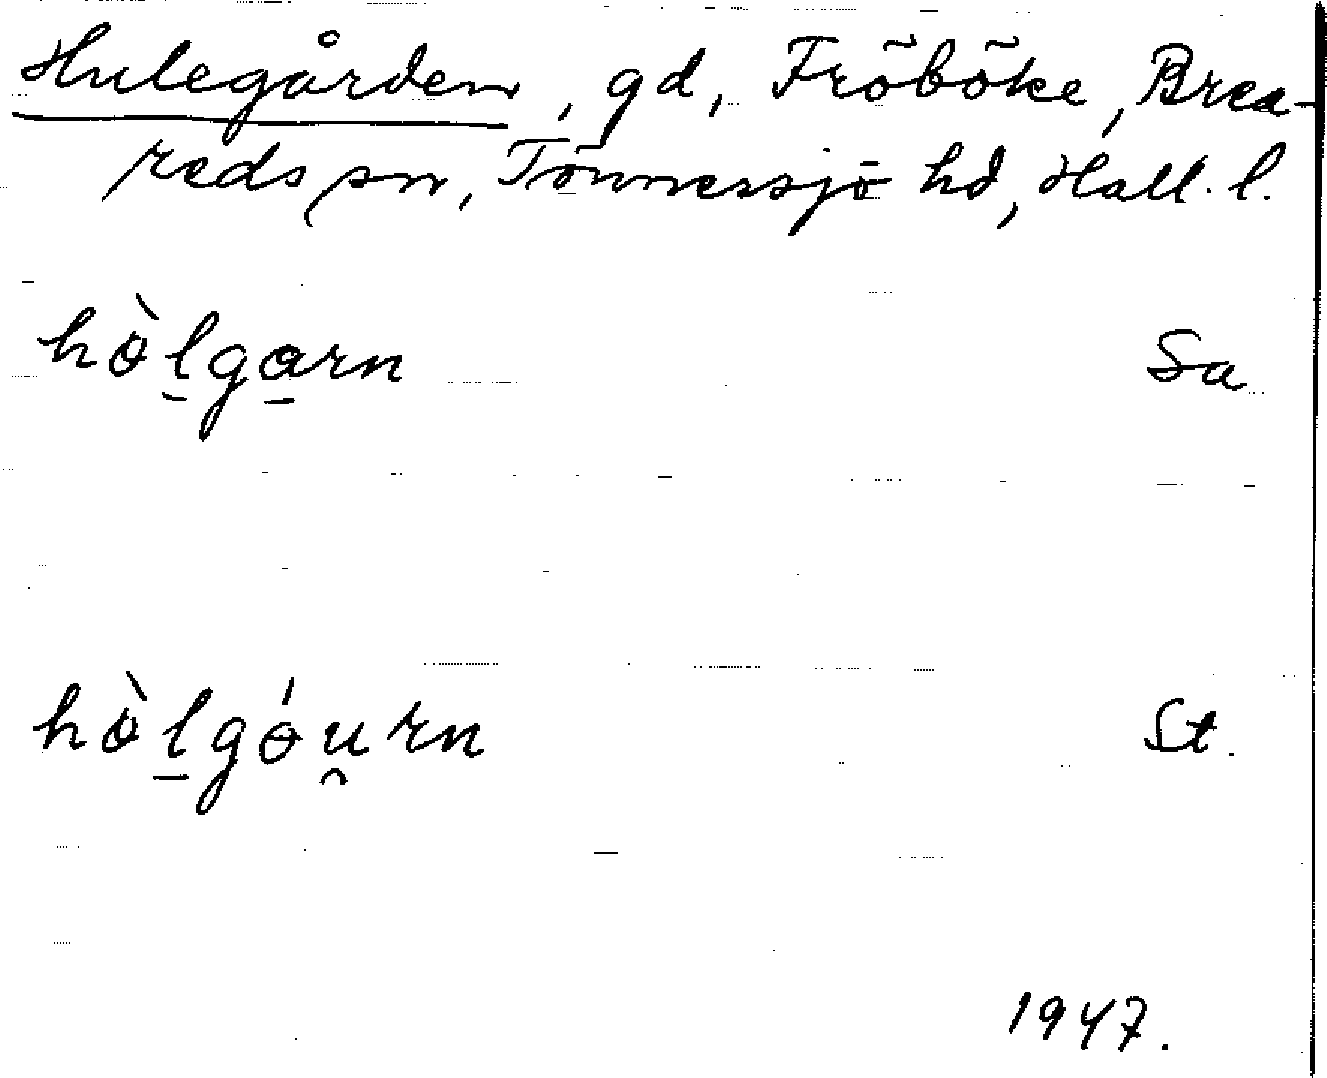 Hulegården, gd, Fröböke, Brea-
reds sn, Tönnersjö hd, Hall. l.
hò̱lga̱rn Sa
hò̱lgóu̯rn St.
1947.